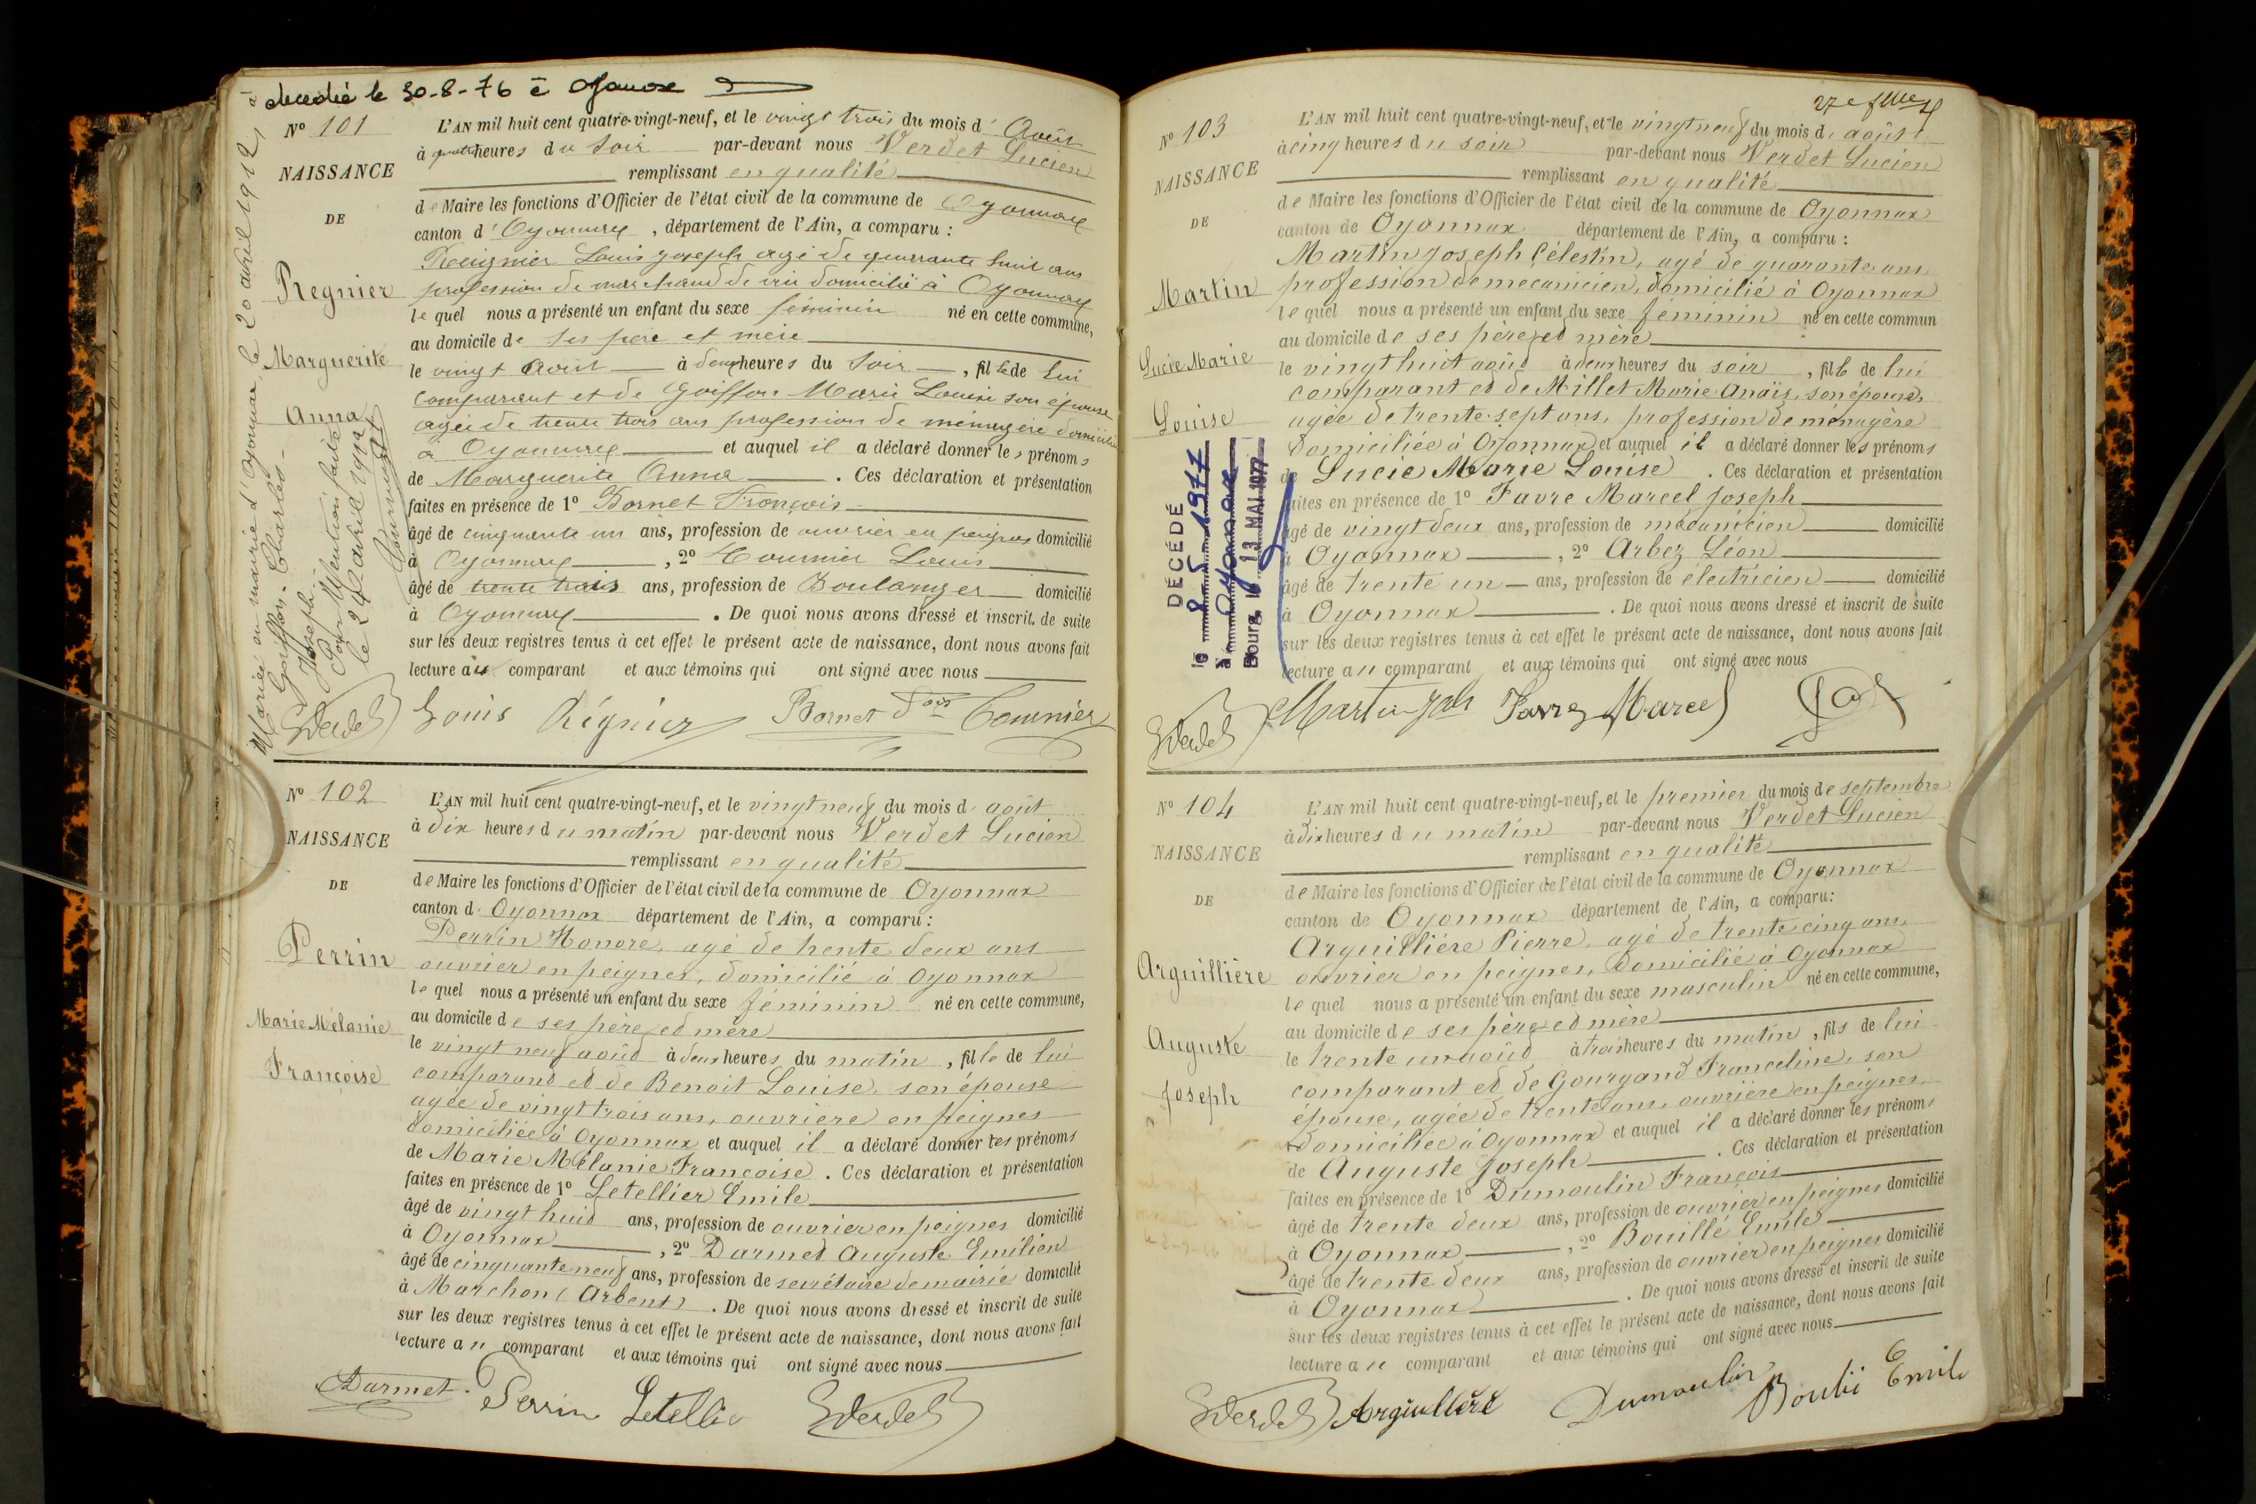 decedée le 30-8-76 à Oyonnax
Nº 101
NAISSANCE
DE
Regnier
Marguerite
Anna
Mariée en mairie d'Oyonnax le 20 avril 1912, à
Goiffon - Charles -
Joseph.
Pour Mention faite
le 24 avril 1912
L'AN mil huit cent quatre-vingt-neuf, et le vingt trois du mois d' Août
à quatre heures du soir par-devant nous Verdet Lucien
remplissant en qualité
de Maire les fonctions d'Officier de l'état civil de la commune de Oyonnax
canton d' Oyonnax, département de l'Ain, a comparu :
Reignier Louis Joseph agé de quarante huit ans
profession de marchand de vin domicilié à Oyonnax
lequel nous a présenté un enfant du sexe féminin né en cette commune,
au domicile de ses père et mère
le vingt Août à deux heures du soir, fille de lui
comparant et de Goiffon Marie Louise son épouse
agée de trente trois ans profession de ménagère domiciliée
à Oyonnax et auquel il a déclaré donner les prénoms
de Marguerite Anna. Ces déclaration et présentation
faites en présence de 1º Bornet François
âgé de cinquante un ans, profession de ouvrier en peignes domicilié
à Oyonnax, 2º Tournier Louis
âgé de trente trois ans, profession de Boulanger domicilié
à Oyonnax. De quoi nous avons dressé et inscrit de suite
sur les deux registres tenus à cet effet le présent acte de naissance, dont nous avons fait
lecture au comparant et aux témoins qui ont signé avec nous
Verdet Louis Régnier Bornet Fois Tournier
Nº 102
NAISSANCE
DE
Perrin
Marie Mélanie
Françoise
L'AN mil huit cent quatre-vingt-neuf, et le vingt neuf du mois d' août
à dix heures du matin par-devant nous Verdet Lucien
remplissant en qualité
de Maire les fonctions d'Officier de l'état civil de la commune de Oyonnax
canton d' Oyonnax département de l'Ain, a comparu :
Perrin Honoré, agé de trente deux ans
ouvrier en peignes, domicilié à Oyonnax
lequel nous a présenté un enfant du sexe féminin né en cette commune,
au domicile de ses père et mère
le vingt neuf août à deux heures du matin, fille de lui
comparant et de Benoit Louise, son épouse
agée de vingt trois ans, ouvrière en peignes
domiciliée à Oyonnax et auquel il a déclaré donner les prénoms
de Marie Mélanie Françoise. Ces déclaration et présentation
faites en présence de 1º Letellier Emile
âgé de vingt huit ans, profession de ouvrier en peignes domicilié
à Oyonnax, 2º Darmet Auguste Emilien
âgé de cinquante neuf ans, profession de secrétaire de mairie domicilié
à Marchon (Arbent). De quoi nous avons dressé et inscrit de suite
sur les deux registres tenus à cet effet le présent acte de naissance, dont nous avons fait
lecture au comparant et aux témoins qui ont signé avec nous
Darmet. Perrin Letellier Verdet
Nº 103
NAISSANCE
DE
Martin
Lucie Marie
Louise
DÉCÉDÉ
le 8.5.1977
à Oyonnax
Bourg, le 13 MAI 1977
L'AN mil huit cent quatre-vingt-neuf, et le vingt neuf du mois d' août
à cinq heures du soir par-devant nous Verdet Lucien
remplissant en qualité
de Maire les fonctions d'Officier de l'état civil de la commune de Oyonnax
canton de Oyonnax département de l'Ain, a comparu :
Martin Joseph Célestin, agé de quarante ans
profession de mécanicien, domicilié à Oyonnax
lequel nous a présenté un enfant du sexe féminin né en cette commun
au domicile de ses père et mère
le vingt huit août à deux heures du soir, fille de lui
comparant et de Millet Marie Anaïs, son épouse,
agée de trente-sept ans, profession de ménagère
domiciliée à Oyonnax et auquel il a déclaré donner les prénoms
de Lucie Marie Louise. Ces déclaration et présentation
faites en présence de 1º Favre Marcel Joseph
âgé de vingt deux ans, profession de mécanicien domicilié
à Oyonnax, 2º Arbez Léon
âgé de trente un ans, profession de électricien domicilié
à Oyonnax. De quoi nous avons dressé et inscrit de suite
sur les deux registres tenus à cet effet le présent acte de naissance, dont nous avons fait
lecture au comparant et aux témoins qui ont signé avec nous
Verdet Martin Jph Favre Marcel
Nº 104
NAISSANCE
DE
Arguillière
Auguste
Joseph
L'AN mil huit cent quatre-vingt-neuf, et le premier du mois de septembre
à dix heures du matin par-devant nous Verdet Lucien
remplissant en qualité
de Maire les fonctions d'Officier de l'état civil de la commune de Oyonnax
canton de Oyonnax département de l'Ain, a comparu :
Arguillière Pierre, agé de trente cinq ans,
ouvrier en peignes, domicilié à Oyonnax
lequel nous a présenté un enfant du sexe masculin né en cette commune,
au domicile de ses père et mère
le trente un août à trois heures du matin, fils de lui
comparant et de Gourgand Franceline, son
épouse, agée de trente ans, ouvrière en peignes
domiciliée à Oyonnax et auquel il a déclaré donner les prénoms
de Auguste Joseph. Ces déclaration et présentation
faites en présence de 1º Dumoulin François
âgé de trente deux ans, profession de ouvrier en peignes domicilié
à Oyonnax, 2º Bouillé Emile
âgé de trente deux ans, profession de ouvrier en peignes domicilié
à Oyonnax. De quoi nous avons dressé et inscrit de suite
sur les deux registres tenus à cet effet le présent acte de naissance, dont nous avons fait
lecture au comparant et aux témoins qui ont signé avec nous
Verdet Arguillère Dumoulin Boulié Emile